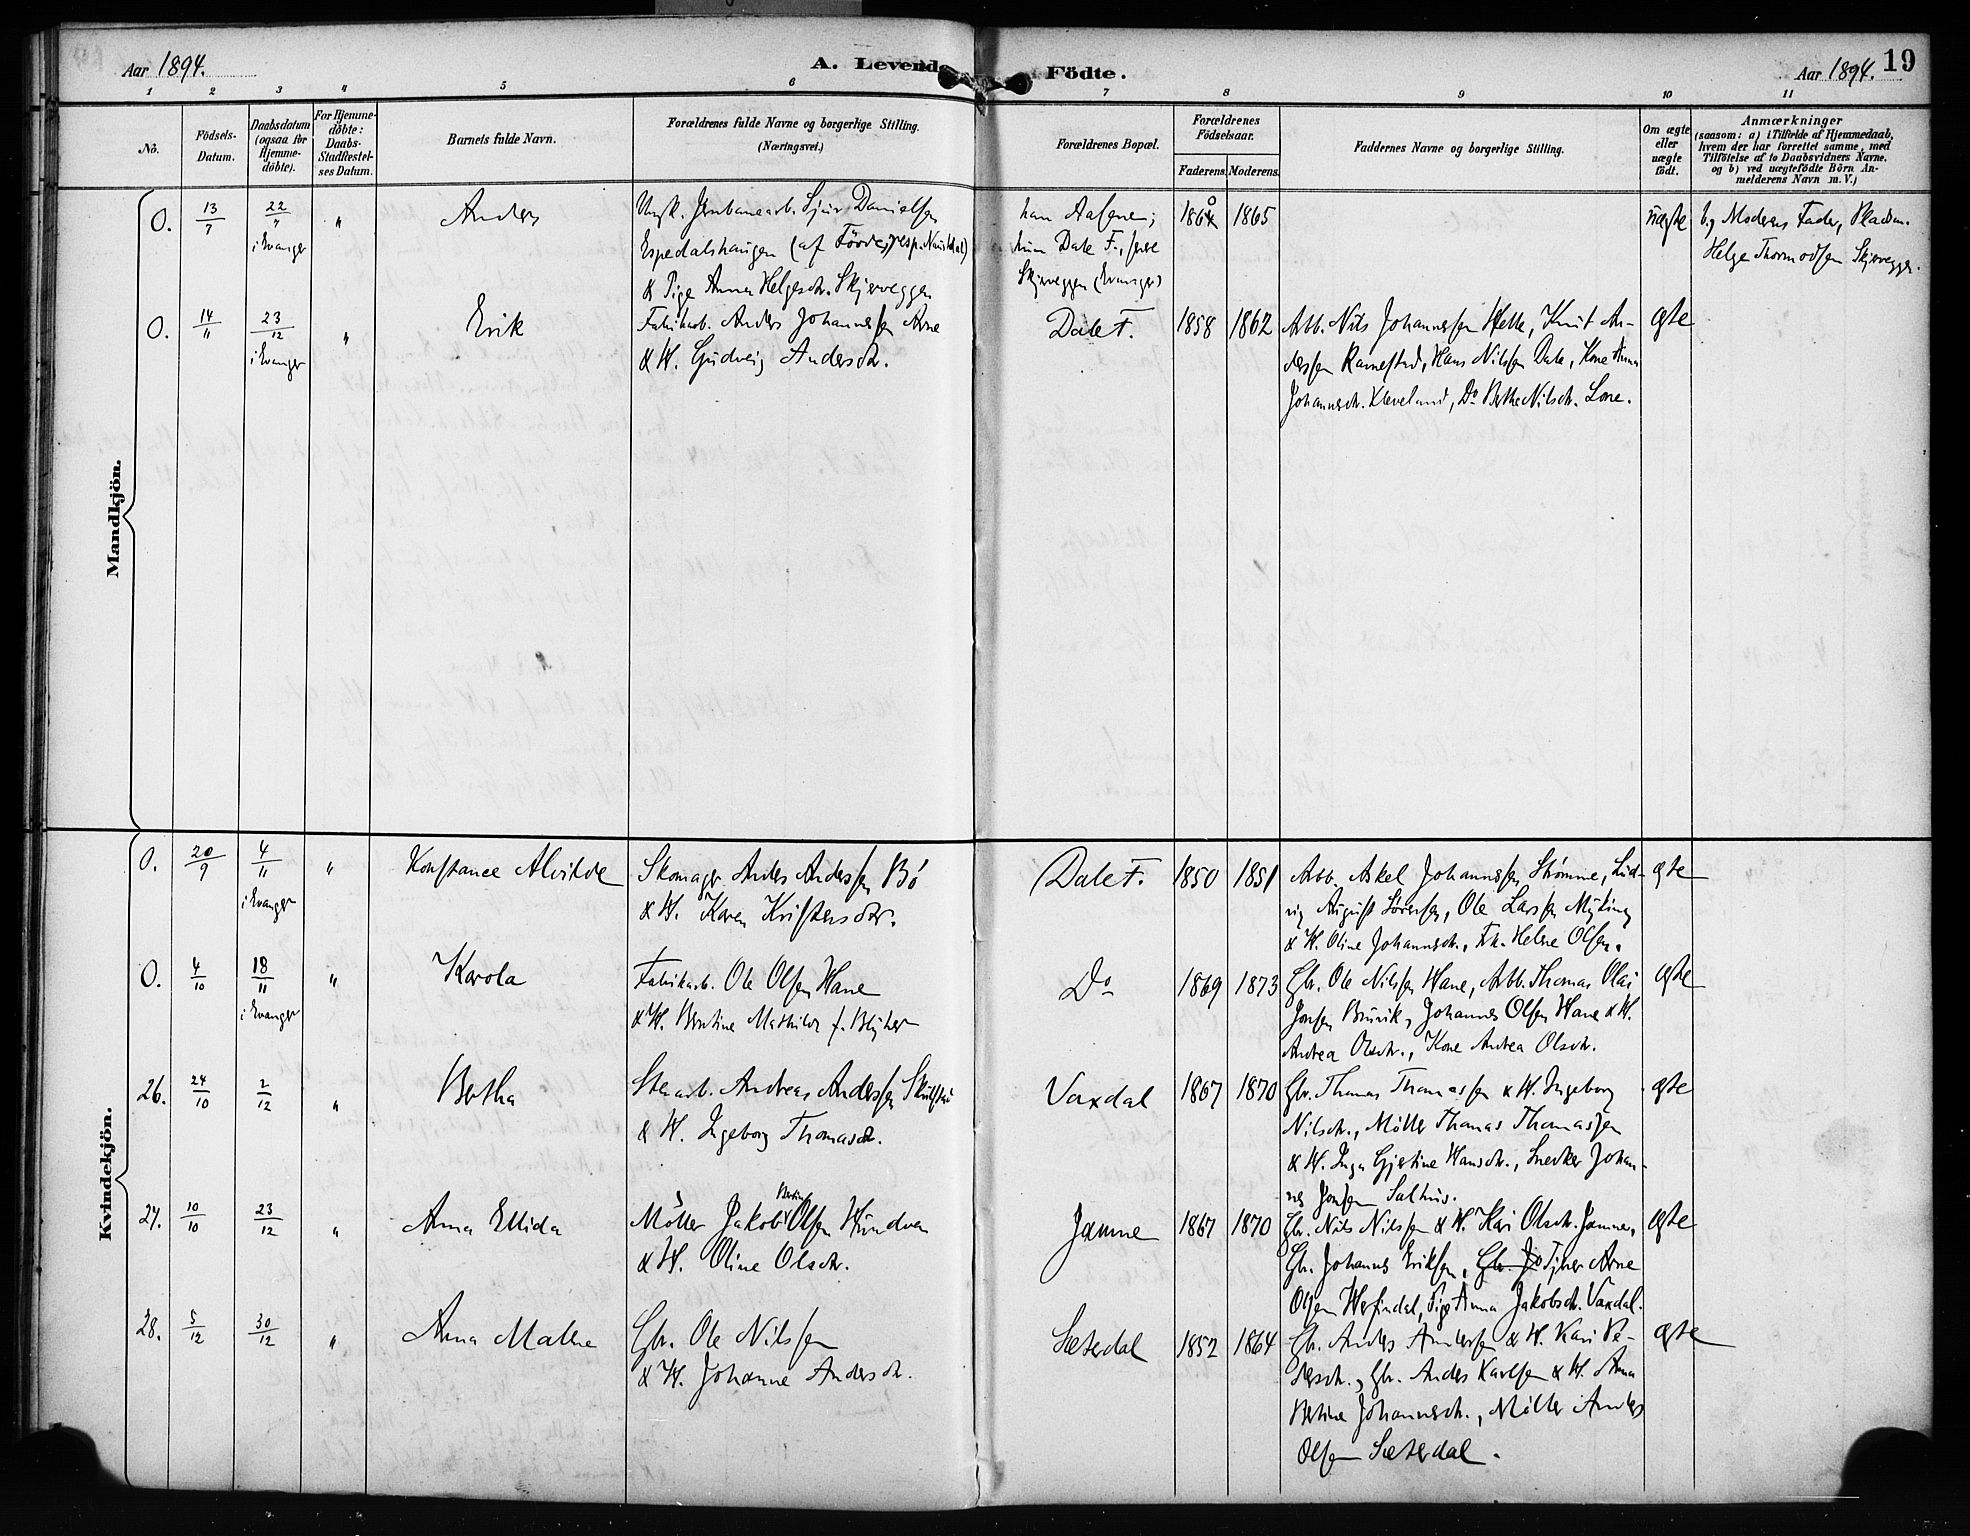 Aar 1894.
A. Levende Födte.
Aar 1894. 19
1 2 3 4 5 6 7 8 9 10 11
No.
Födsels-Datum.
Daabsdatum (ogsaa for Hjemme-döbte).
For Hjemme-döbte: Daabs-Stadfæstel-ses Datum.
Barnets fulde Navn.
Forældrenes fulde Navne og borgerlige Stilling.
(Næringsvei.)
Forældrenes Bopæl.
Forældrenes Födselsaar.
Faderens. Moderens.
Faddernes Navne og borgerlige Stilling.
Om ægte eller uægte födt.
Anmærkninger
(saasom: a) i Tilfælde af Hjemmedaab,
hvem der har forrettet samme, med
Tilföielse af to Daabsvidners Navne.
og b) ved uægtefödte Börn An-
melderens Navn m. V.)
Mandkjön.
0. 13/7 22/" i Evanger " Anders
Ungk. Jernbanearb. Sjur Danielsen
Espedalshaugen (af Förde, resp. Naustdal)
& Pige Anna Helgesdtr. Skjerveggen
han Aasene;
hun Dale F.,
Skjerveggen (Evanger)
1865
uægte
b, Moderens Fader, Pladsm.
Helge Thormodsen Skjervegge.
0. 14/11 23/12 i Evanger " Erik
Fabrikarb. Anders Johannessen Arne
& H. Gudveig Andersdtr.
Dale F. 1858 1862
Arb. Nils Johannessen Helle, Knut An-
dersen Ravnestad, Hans Nilsen Dale, Kone Anna
Johannesdtr. Kleveland, Do Berthe Nilsdtr. Lone.
ægte
Kvindekjön.
0. 20/9 4/11 i Evanger " Konstance Alvilde
Skomager Anders Anderssen Bö
& H. Karen Kristensdtr.
Dale F. 1850 1851
Arb. Askel Johannessen Strømme, Lud-
vig August Sörensen, Ole Larsen Myking
& H. Oline Johannesdtr., Frk. Helene Olsen.
ægte
0. 4/10 18/11 i Evanger " Karola
Fabrikarb. Ole Olsen Hane
& H. Bertine Mathilde f.
Do 1869 1873
Gbr. Ole Nilssen Hane, Arb. Thomas Olai
Jonsen Bruvik, Johannes Olsen Hane & H.
Andrea Olsdtr., Kone Andrea Olsdtr.
ægte
26. 24/10 2/12 " Bertha
Stenarb. Andreas Anderssen
& H. Ingeborg Thomasdtr.
Vaxdal 1867 1870
Gbr. Thomas Thomassen & H. Ingeborg
Nilsdtr., Møller Thomas Thomassen
& H. Inga Gjertine Hansdtr., Snedker Johan-
nes Jonsen Salhus.
ægte
27. 10/10 23/12 " Anna Ellida
Møller Jakob Bertin Olsen Hundven
& H. Oline Olsdtr.
Jamne 1867 1870
Gbr. Nils Nilssen & H. Kari Olsdtr. Jamne,
Gbr. Johannes Eriksen, Gbr. Jo Tjener Arne
Olsen Herfindal, Pige Anna Jakobsdtr. Vaxdal.
ægte
28. 5/12 30/12 " Anna Malene
Gbr. Ole Nilssen
& H. Johanne Andersdtr.
Sæterdal 1852 1864
Gbr. Anders Anderssen & H. Kari Pe-
dersdtr., Gbr. Anders Karlsen & H. Anna
Bertine Johannesdtr., Møller Anders
Olsen Sæterdal.
ægte